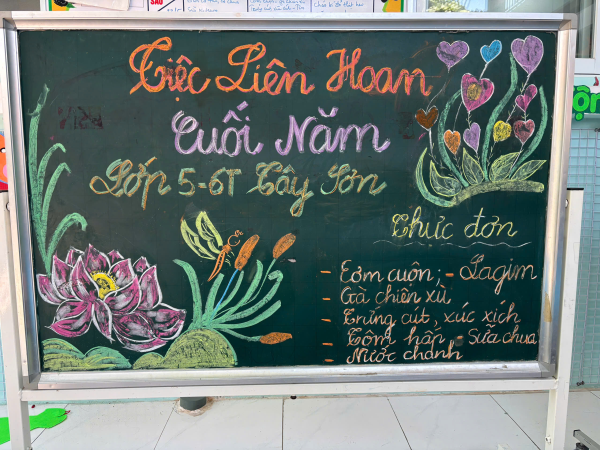 Tiệc Liên Hoan
Cuối Năm
Lớp 5-6T Tây Sơn
Thực đơn
- Cơm cuộn; - Lagim
- Gà chiên xù
- Trứng cút, xúc xích
- Tôm hấp - Sữa chua
- Nước chanh